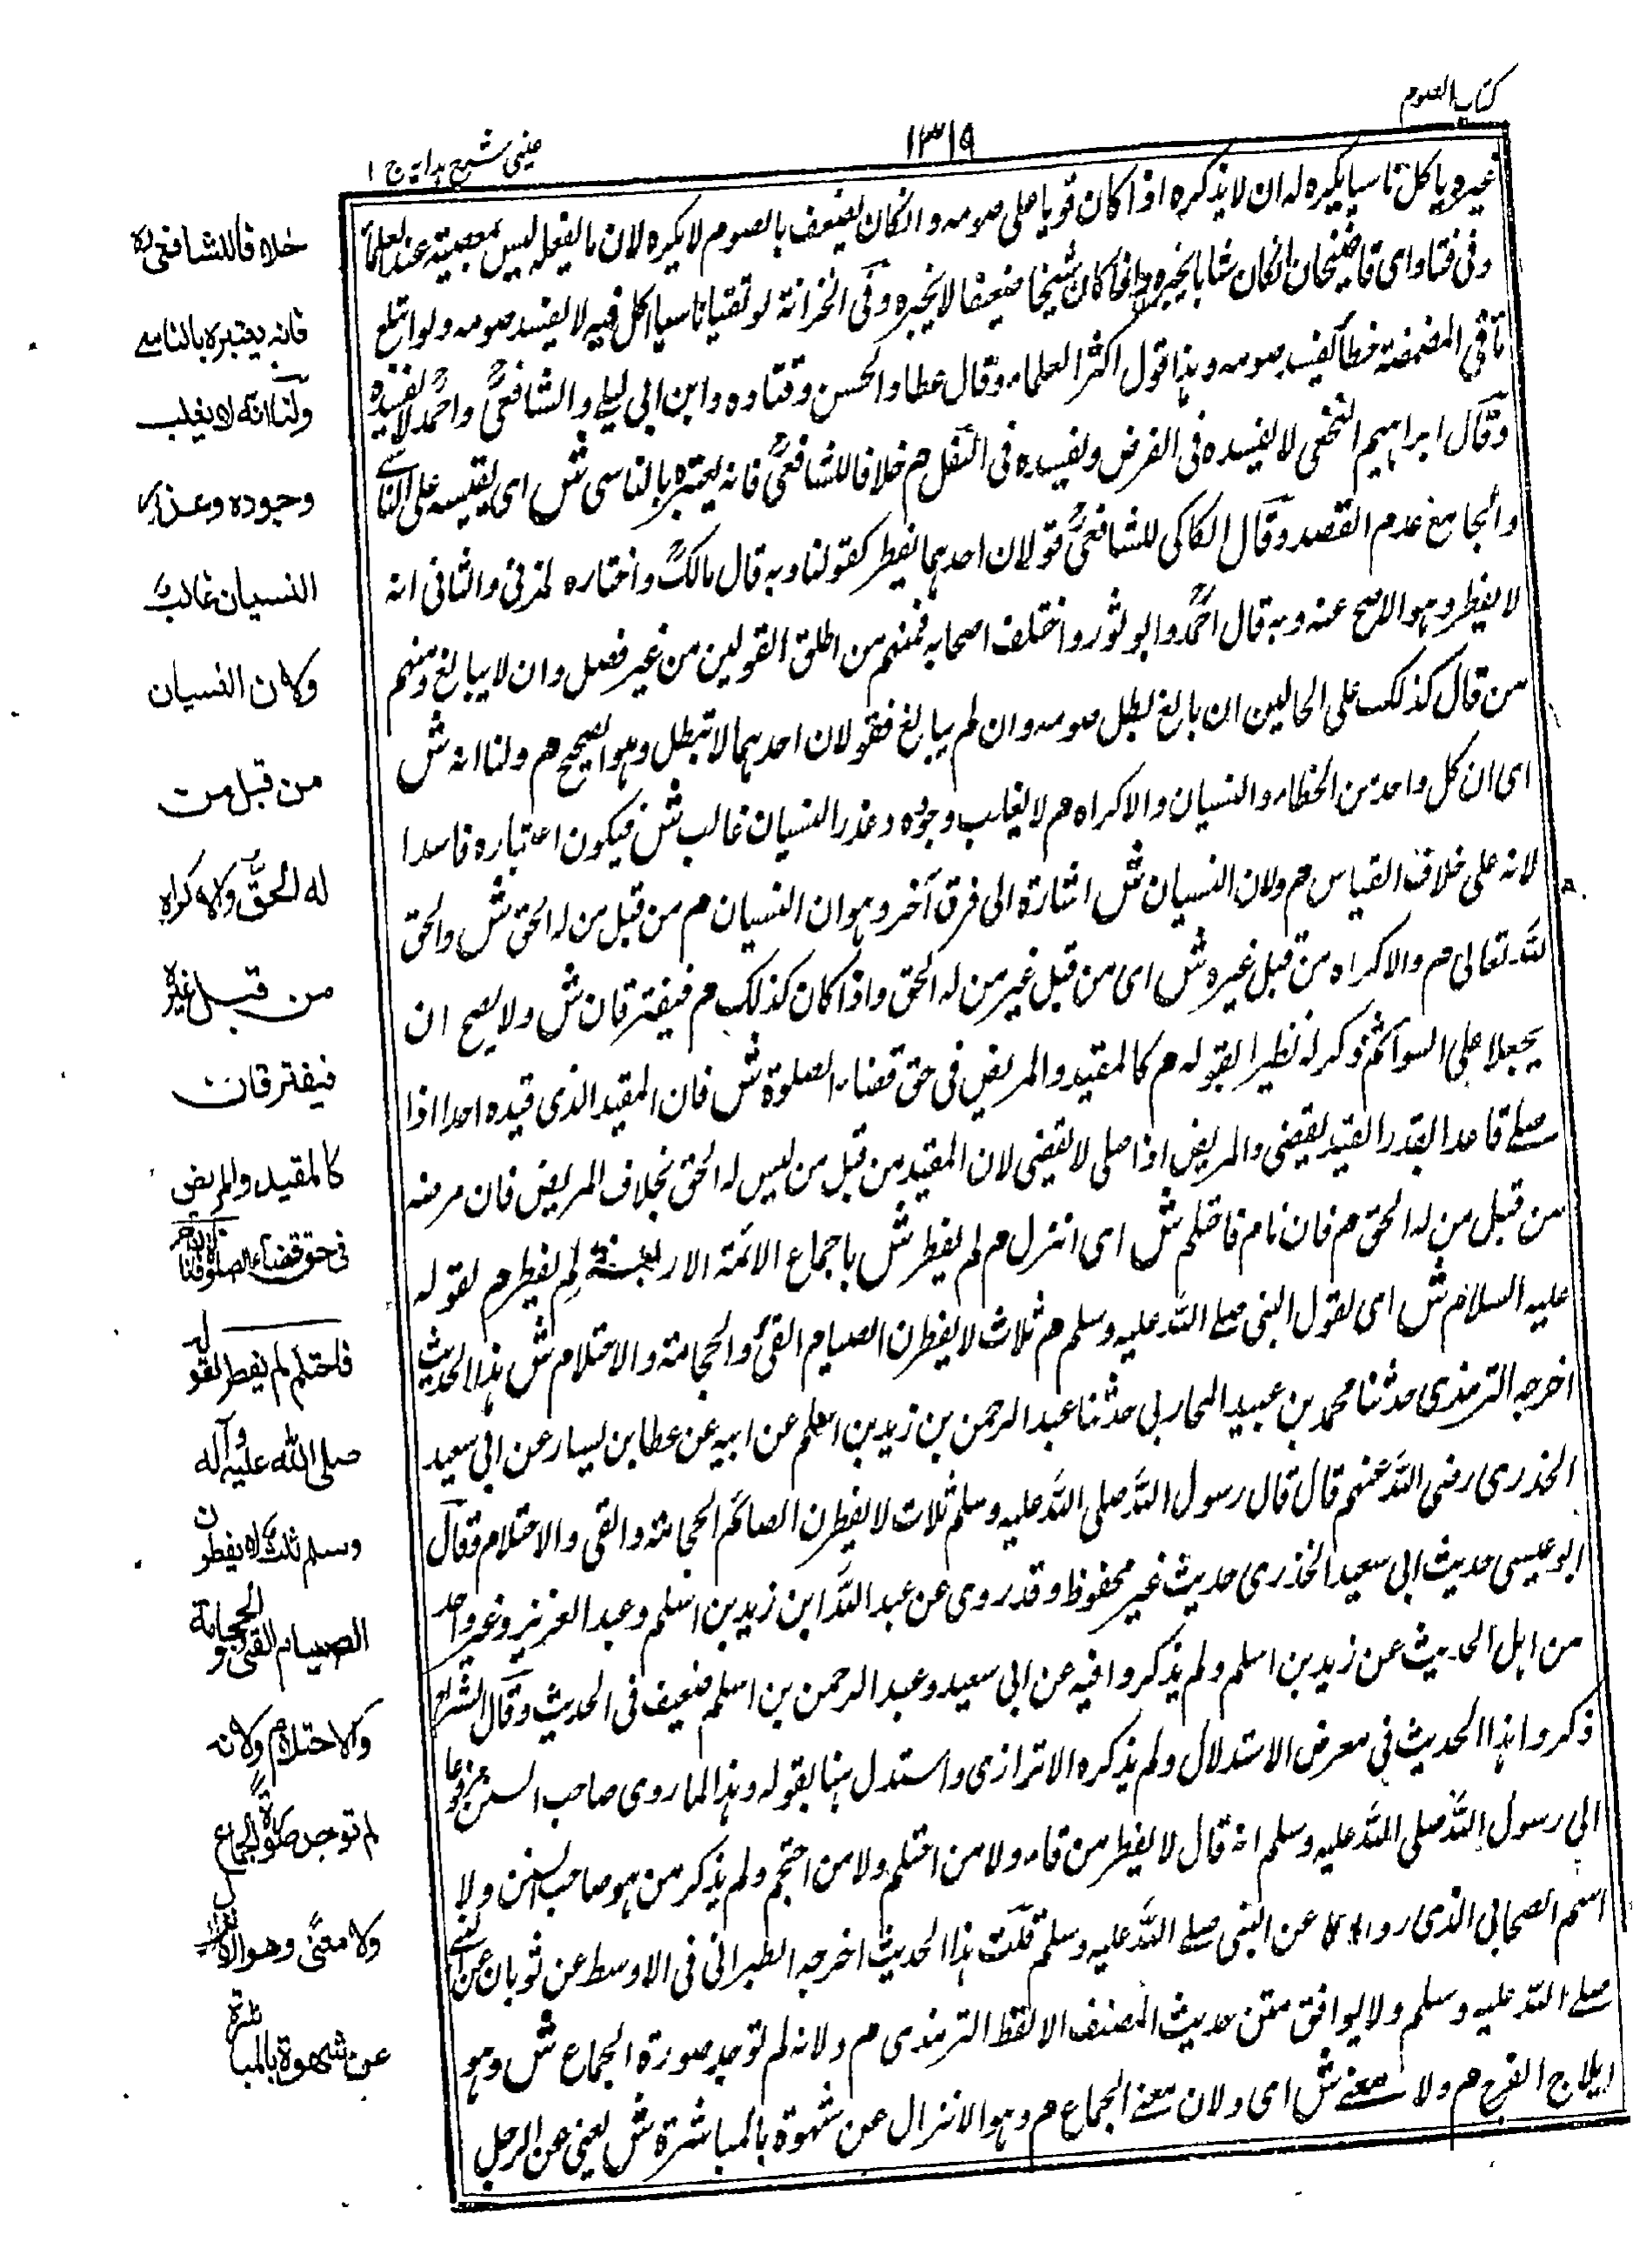 كتاب الصوم
١٣١٩
عینی شرح ہدایہ ج ۱
غیره یاکل ناسیا یکره له ان لا یذکره اذا کان قویا علی صومه وان کان یضعف بالصوم لا یکره لان ما یفعله لیس بمعصیة عند العلماء
وفی فتاوای قاضیخان ان کان شابا یخبره واذا کان شیخا ضعیفا لا یخبره وفی الخزانة لو تقیا ناسیا اکل فیه لا یفسد صومه ولو ابتلع
ما فی المضمضة خطأ یفسد صومه وہذا قول اکثر العلماء وقال عطا والحسن وقتاده وابن ابی لیلے والشافعیؒ واحمدؒ لا یفسده
وقال ابراہیم النخعی لا یفسده فی الفرض ویفسده فی النفل م خلافا للشافعیؒ فانه یعتبره بالناسی ش ای یقیسه علی الناسے
والجامع عدم القصد وقال الکاکی للشافعیؒ قولان احدہما یفطر کقولنا وبه قال مالکؒ واختاره المزنی والثانی انه
لا یفطر وہو الاصح عنه وبه قال احمدؒ وابو ثور واختلف اصحابه فمنہم من اطلق القولین من غیر فصل وان لا یبالغ ومنہم
من قال کذلک علی الحالین ان بالغ بطل صومه وان لم یبالغ فقولان احدہما لا تبطل وہو الصحیح م ولنا انه ش
ای ان کل واحد من الخطاء والنسیان والاکراه م لا یغلب وجوده وعذر النسیان غالب ش فیکون اعتباره فاسدا
لانه علی خلاف القیاس م ولان النسیان ش اشارة الی فرق آخر وہو ان النسیان م من قبل من له الحق ش والحق
للہ تعالی م والاکراه من قبل غیره ش ای من قبل غیر من له الحق واذا کان کذلک م فیفترقان ش ولا یصح ان
یجعلا علی السواء ثم ذکر له نظیرا بقوله م کالمقید والمریض فی حق قضاء الصلوة ش فان المقید الذی قیده احد اذا
صلے قاعدا بقدر القید یقضی والمریض اذا صلی لا یقضی لان المقید من قبل من لیس له الحق بخلاف المریض فان مرضه
من قبل من له الحق م فان نام فاحتلم ش ای انزل م لم یفطر ش باجماع الائمة الاربعة لم یفطر م لقوله
علیه السلام ش ای لقول النبی صلے اللہ علیه وسلم م ثلاث لا یفطرن الصیام القئ والحجامة والاحتلام ش ہذا الحدیث
اخرجه الترمذی حدثنا محمد بن عبید المحاربی حدثنا عبد الرحمن بن زید بن اسلم عن ابیه عن عطا بن یسار عن ابی سعید
الخدری رضی اللہ عنہم قال قال رسول اللہ صلی اللہ علیه وسلم ثلاث لا یفطرن الصائم الحجامة والقی والاحتلام وقال
ابو عیسی حدیث ابی سعید الخدری حدیث غیر محفوظ وقد روی عن عبد اللہ ابن زید بن اسلم وعبد العزیز وغیر واحد
من اہل الحدیث عن زید بن اسلم ولم یذکروا فیه عن ابی سعید وعبد الرحمن بن اسلم ضعیف فی الحدیث وقال الشراح
ذکروا ہذا الحدیث فی معرض الاستدلال ولم یذکره الاترازی واستدل ہنا بقوله وہذا لما روی صاحب السنن مرفوعا
الی رسول اللہ صلی اللہ علیه وسلم انه قال لا یفطر من قاء ولا من احتلم ولا من احتجم ولم یذکر من ہو صاحب السنن ولا
اسم الصحابی الذی رواه عن النبی صلے اللہ علیه وسلم قلت ہذا الحدیث اخرجه الطبرانی فی الاوسط عن ثوبان عن النبے
صلے اللہ علیه وسلم ولا یوافق متن حدیث المصنف الا لفظ الترمذی م ولانه لم توجد صورة الجماع ش وہو
ایلاج الفرج م ولا معنے ش ای ولان معنے الجماع م وہو الانزال عن شہوة بالمباشرة ش یعنی عن الرجل
خلافا للشافعی
فانه یعتبره بالناسے
ولنا انه لا یغلب
وجوده وعذر
النسیان غالب
ولان النسیان
من قبل من
له الحق والاکراه
من قبل غیره
فیفترقان
کالمقید والمریض
فی حق قضاء الصلوة فان نام
فاحتلم لم یفطر لقوله
صلی الله علیه وآله
وسلم ثلث لا یفطرن
الصیام القئ والحجامة
والاحتلام ولانه
لم توجد صورة الجماع
ولا معنی وهو الانزال
عن شهوة بالمباشرة